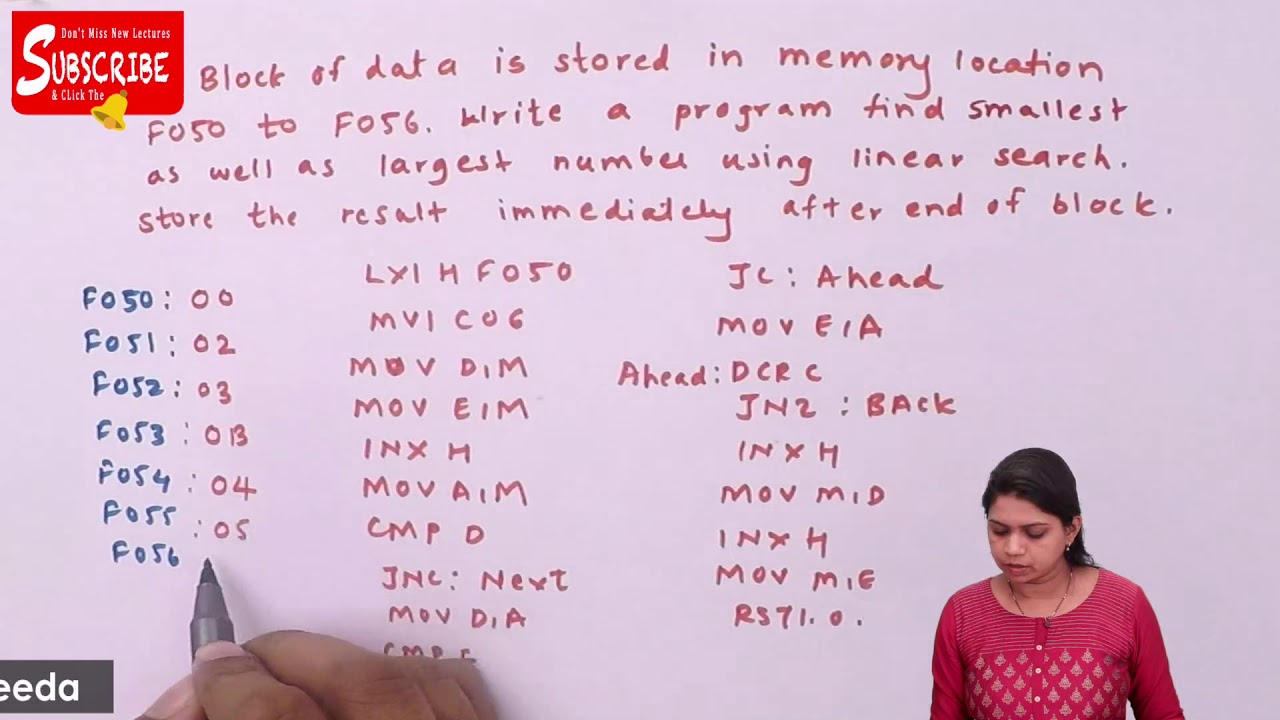 Don't Miss New Lectures
SUBSCRIBE
& CLick The
Block of data is stored in memory location
F050 to F056. Write a program find smallest
as well as largest number using linear search.
store the result immediately after end of block.
F050: 00
F051: 02
F052: 03
F053: 0B
F054: 04
F055: 05
F056
LXI H F050
MVI C06
MOV D,M
MOV E,M
INX H
MOV A,M
CMP D
JNC: Next
MOV D,A
CMP E
JC: Ahead
MOV E,A
Ahead: DCR C
JNZ: BAck
INX H
MOV M,D
INX H
MOV M,E
RST1.0.
eeda